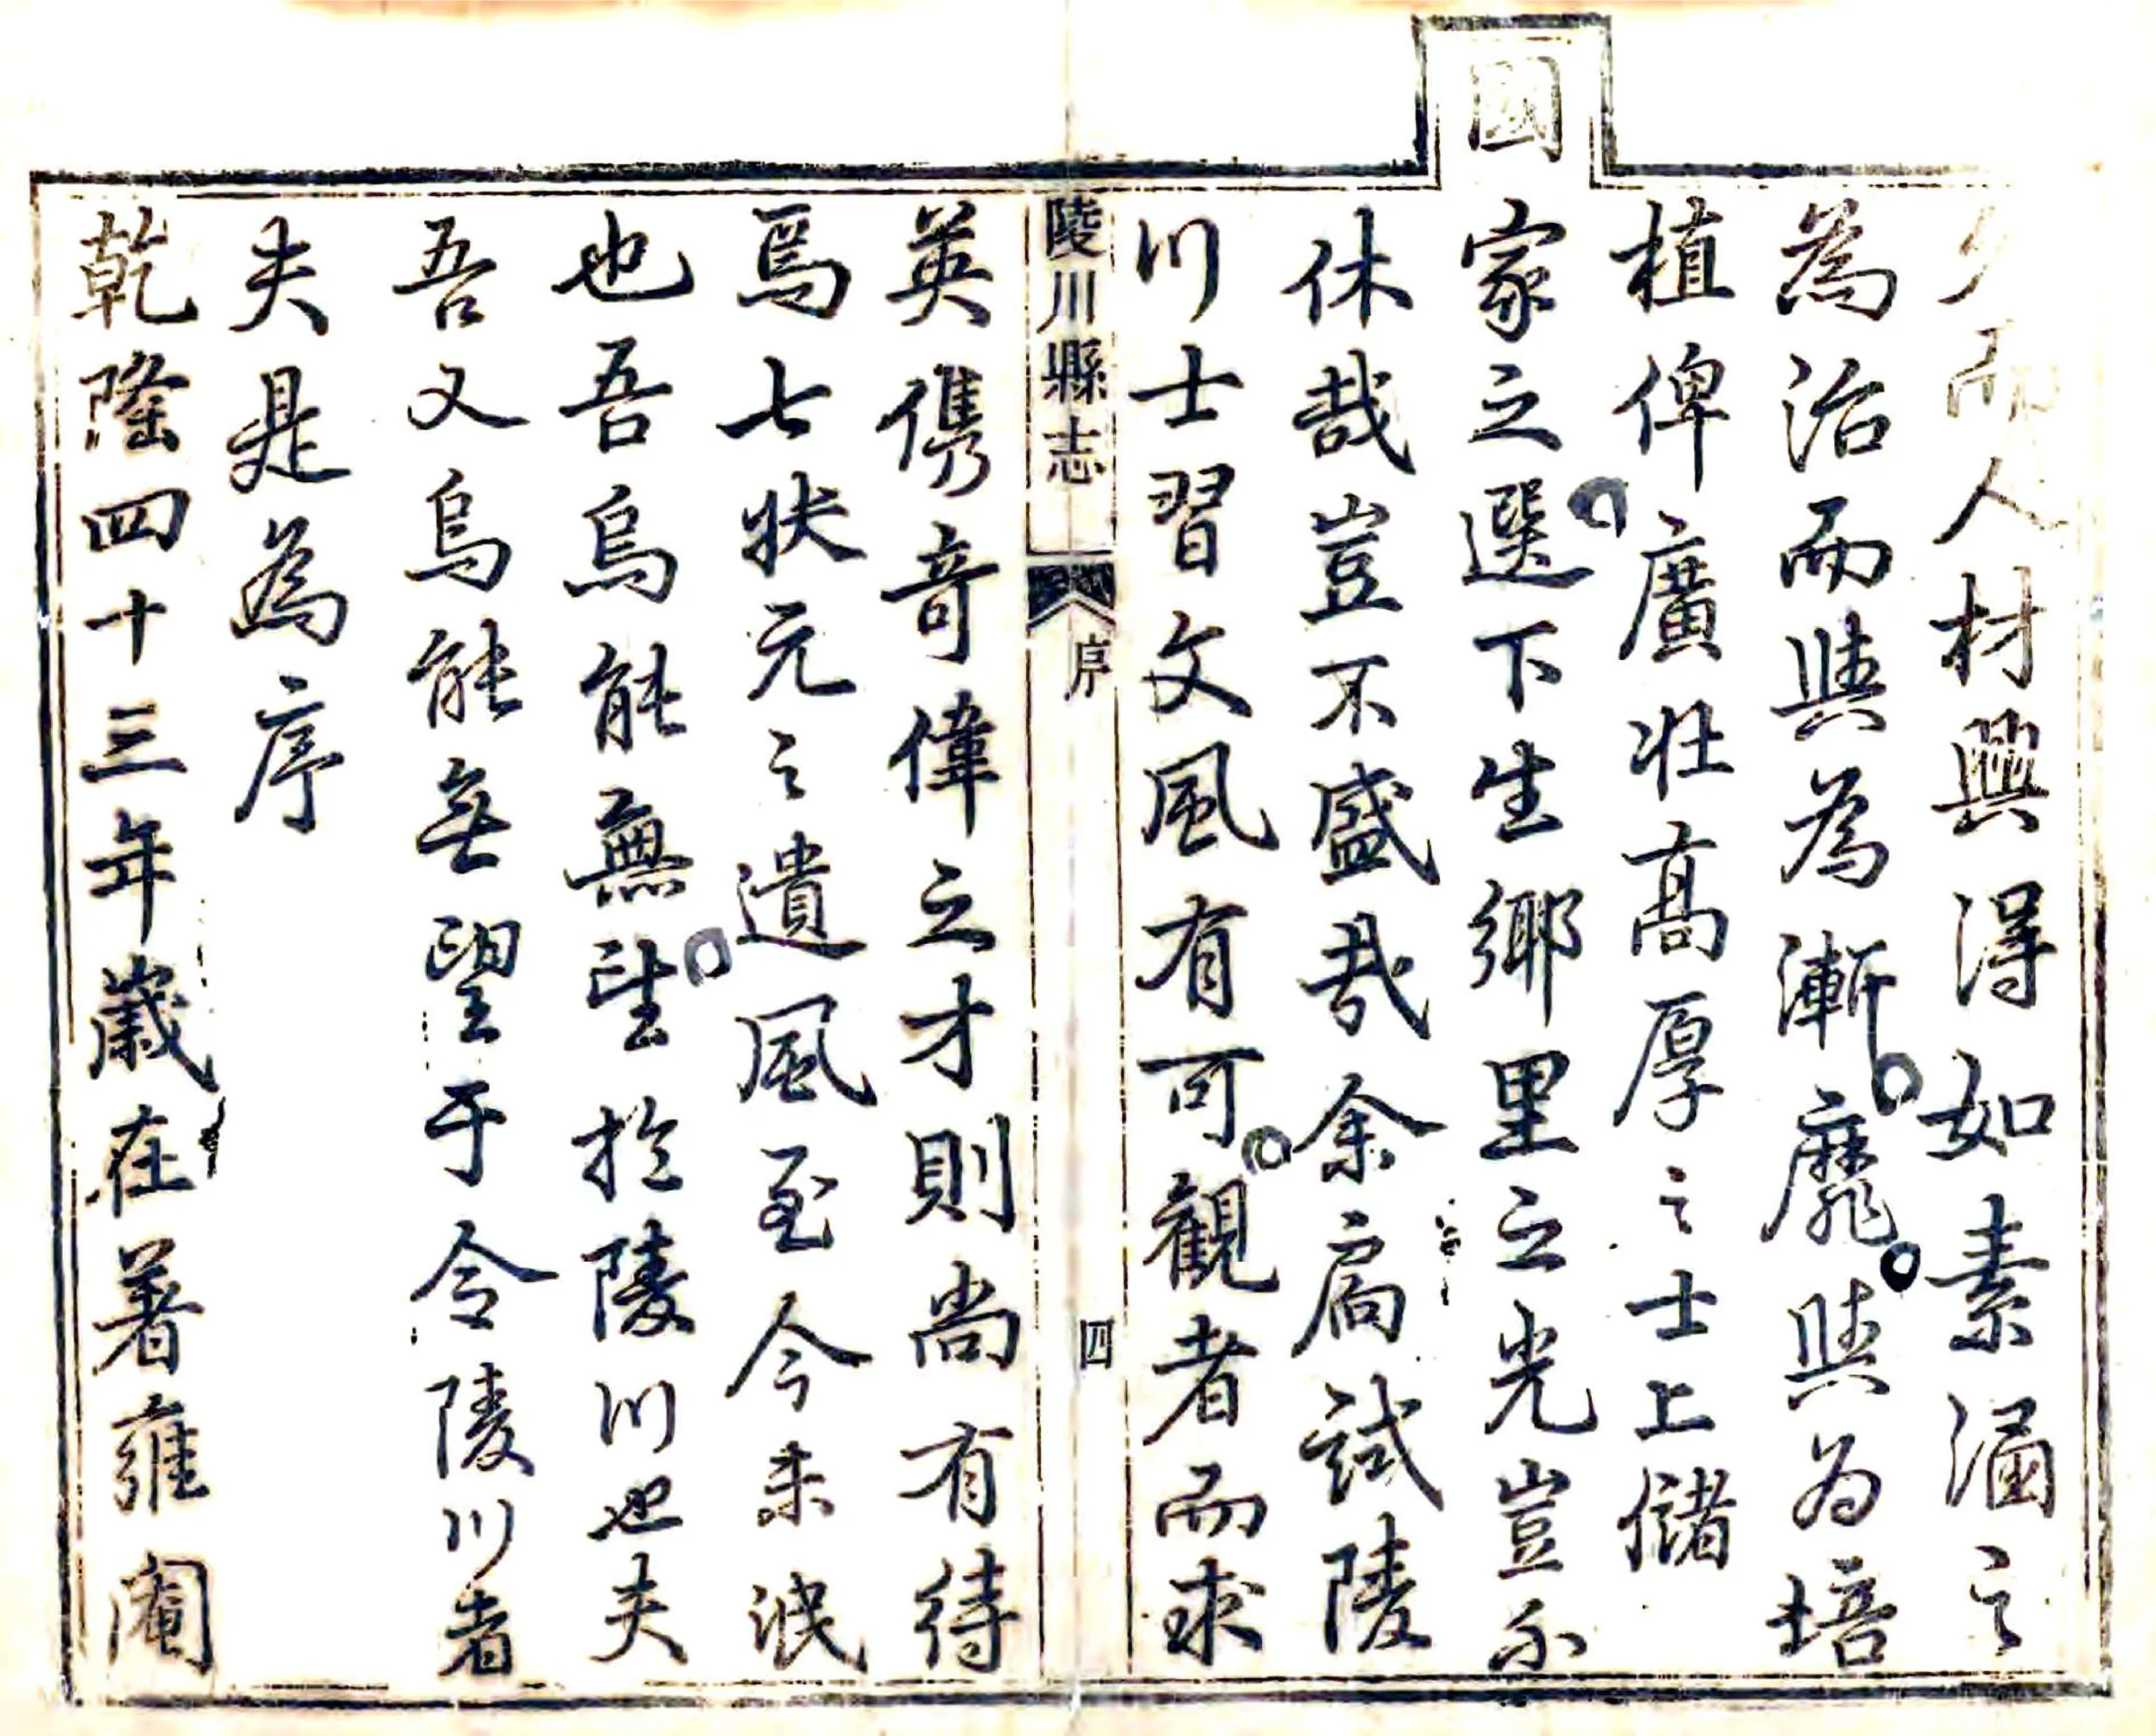 而人材興得如素涵之
為治而與為漸靡與為培
植俾廣壯高厚之士上儲
國家之選下生鄉里之光豈不
休哉豈不盛哉余扃試陵
川士習文風有可觀者而求
陵川縣志 序 四
英儁奇偉之才則尚有待
焉七狀元之遺風至今未泯
也吾烏能無望於陵川也夫
吾又烏能無望于令陵川者
夫是為序
乾隆四十三年歲在著雍閹